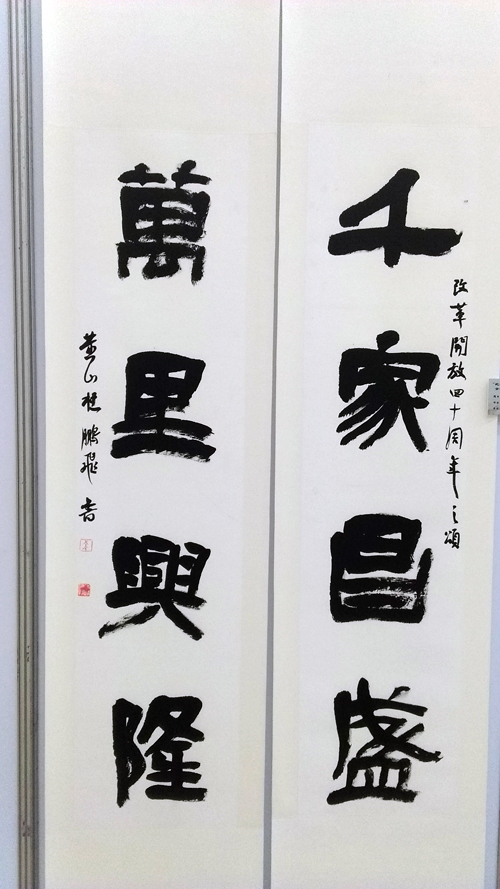 改革開放四十周年之頌
千家昌盛
萬里興隆
黄山 鵬飛書